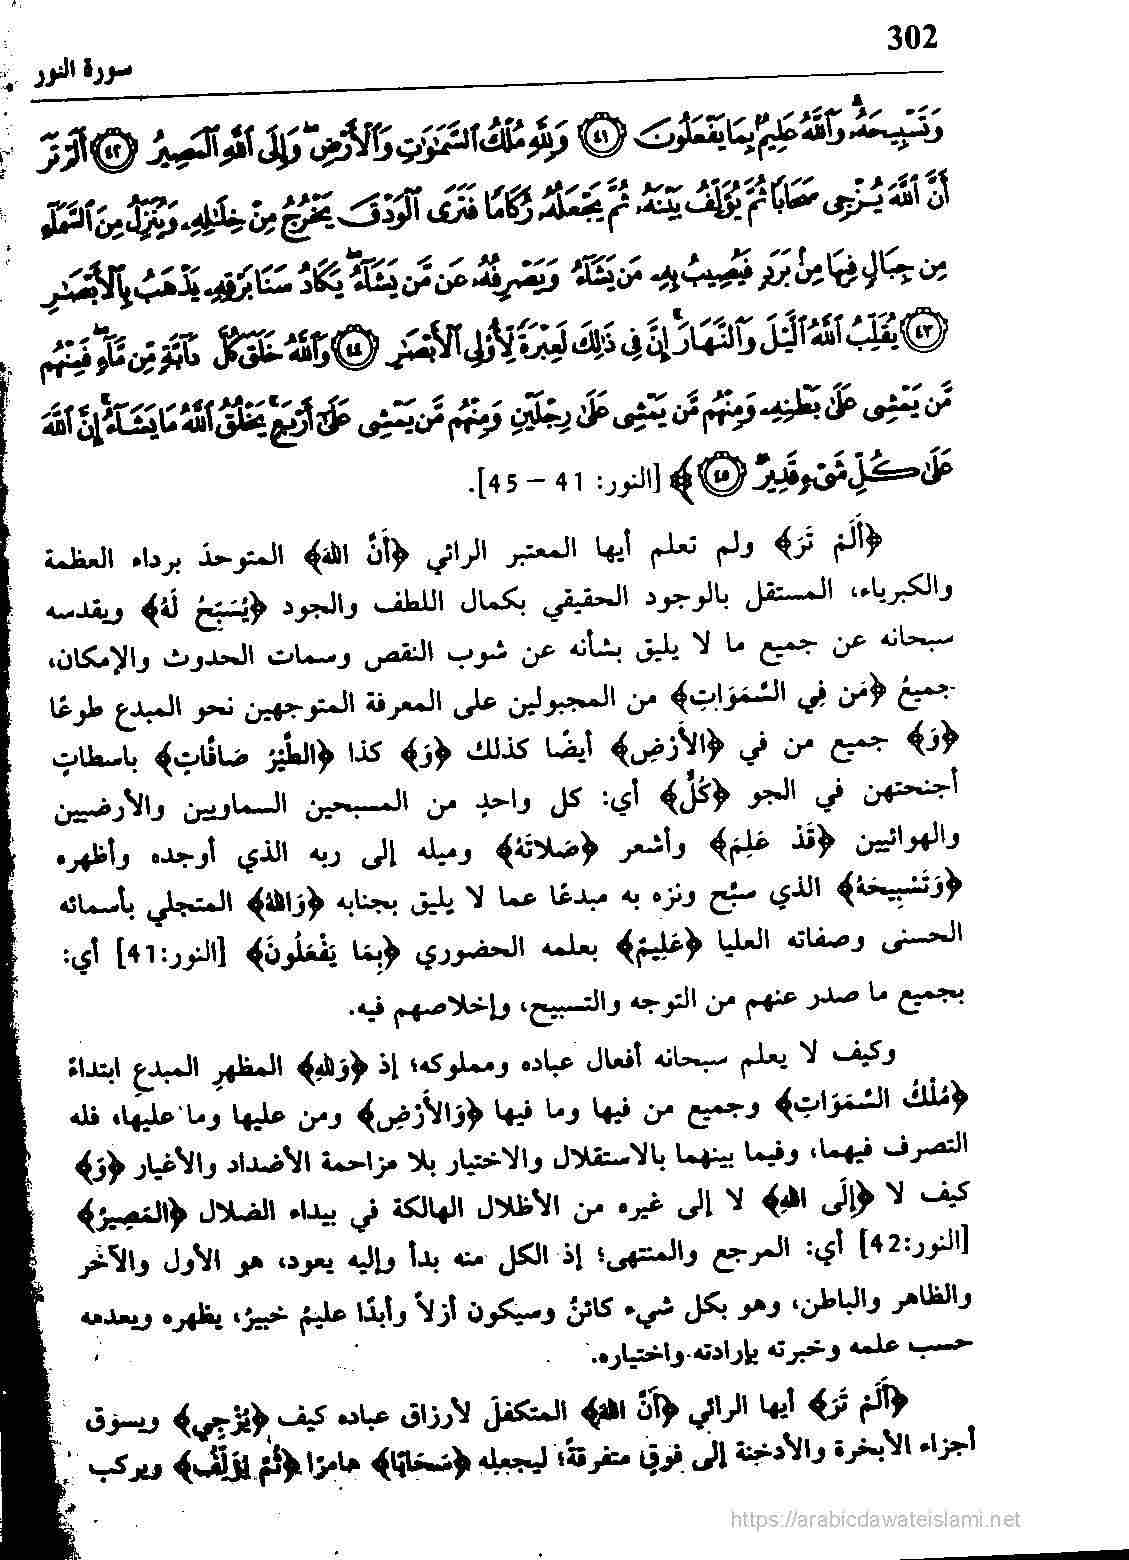 302
سورة النور
وَتَسْبِيحَهُۥ وَٱللَّهُ عَلِيمٌۢ بِمَا يَفْعَلُونَ ٤١ وَلِلَّهِ مُلْكُ ٱلسَّمَٰوَٰتِ وَٱلْأَرْضِ وَإِلَى ٱللَّهِ ٱلْمَصِيرُ ٤٢ أَلَمْ تَرَ
أَنَّ ٱللَّهَ يُزْجِى سَحَابًا ثُمَّ يُؤَلِّفُ بَيْنَهُۥ ثُمَّ يَجْعَلُهُۥ رُكَامًا فَتَرَى ٱلْوَدْقَ يَخْرُجُ مِنْ خِلَٰلِهِۦ وَيُنَزِّلُ مِنَ ٱلسَّمَآءِ
مِن جِبَالٍ فِيهَا مِنۢ بَرَدٍ فَيُصِيبُ بِهِۦ مَن يَشَآءُ وَيَصْرِفُهُۥ عَن مَّن يَشَآءُ يَكَادُ سَنَا بَرْقِهِۦ يَذْهَبُ بِٱلْأَبْصَٰرِ
٤٣ يُقَلِّبُ ٱللَّهُ ٱلَّيْلَ وَٱلنَّهَارَ إِنَّ فِى ذَٰلِكَ لَعِبْرَةً لِّأُو۟لِى ٱلْأَبْصَٰرِ ٤٤ وَٱللَّهُ خَلَقَ كُلَّ دَآبَّةٍ مِّن مَّآءٍ فَمِنْهُم
مَّن يَمْشِى عَلَىٰ بَطْنِهِۦ وَمِنْهُم مَّن يَمْشِى عَلَىٰ رِجْلَيْنِ وَمِنْهُم مَّن يَمْشِى عَلَىٰٓ أَرْبَعٍ يَخْلُقُ ٱللَّهُ مَا يَشَآءُ إِنَّ ٱللَّهَ
عَلَىٰ كُلِّ شَىْءٍ قَدِيرٌ ٤٥ ﴾ [النور: 41 – 45].
﴿أَلَمْ تَرَ﴾ ولم تعلم أيها المعتبر الرائي ﴿أَنَّ اللهَ﴾ المتوحدَ برداء العظمة
والكبرياء، المستقل بالوجود الحقيقي بكمال اللطف والجود ﴿يُسَبِّحُ لَهُ﴾ ويقدسه
سبحانه عن جميع ما لا يليق بشأنه عن شوب النقص وسمات الحدوث والإمكان،
جميعُ ﴿مَن فِي السَّمَوَاتِ﴾ من المجبولين على المعرفة المتوجهين نحو المبدع طوعًا
﴿وَ﴾ جميع من في ﴿الأَرْضِ﴾ أيضًا كذلك ﴿وَ﴾ كذا ﴿الطَّيْرُ صَافَّاتٍ﴾ باسطاتٍ
أجنحتهن في الجو ﴿كُلٌّ﴾ أي: كل واحدٍ من المسبحين السماويين والأرضيين
والهوائيين ﴿قَدْ عَلِمَ﴾ وأشعر ﴿صَلاتَهُ﴾ وميله إلى ربه الذي أوجده وأظهره
﴿وَتَسْبِيحَهُ﴾ الذي سبَّح ونزه به مبدعًا عما لا يليق بجنابه ﴿وَاللهُ﴾ المتجلي بأسمائه
الحسنى وصفاته العليا ﴿عَلِيمٌ﴾ بعلمه الحضوري ﴿بِمَا يَفْعَلُونَ﴾ [النور:41] أي:
بجميع ما صدر عنهم من التوجه والتسبيح، وإخلاصهم فيه.
وكيف لا يعلم سبحانه أفعال عباده ومملوكه؛ إذ ﴿وَللهِ﴾ المظهرِ المبدعِ ابتداءً
﴿مُلْكُ السَّمَوَاتِ﴾ وجميع من فيها وما فيها ﴿وَالأَرْضِ﴾ ومن عليها وما عليها، فله
التصرف فيهما، وفيما بينهما بالاستقلال والاختيار بلا مزاحمة الأضداد والأغيار ﴿وَ﴾
كيف لا ﴿إِلَى اللهِ﴾ لا إلى غيره من الأظلال الهالكة في بيداء الضلال ﴿المَصِيرُ﴾
[النور:42] أي: المرجع والمنتهى؛ إذ الكل منه بدأ وإليه يعود، هو الأول والآخر
والظاهر والباطن، وهو بكل شيء كائنٌ وسيكون أزلاً وأبدًا عليمٌ خبيرٌ، يظهره ويعدمه
حسب علمه وخبرته بإرادته واختياره.
﴿أَلَمْ تَرَ﴾ أيها الرائي ﴿أَنَّ اللهَ﴾ المتكفلَ لأرزاق عباده كيف ﴿يُزْجِي﴾ ويسوق
أجزاء الأبخرة والأدخنة إلى فوقٍ متفرقةً؛ ليجعله ﴿سَحَابًا﴾ هامرًا ﴿ثُمَّ يُؤَلِّفُ﴾ ويركب
https://arabicdawateislami.net